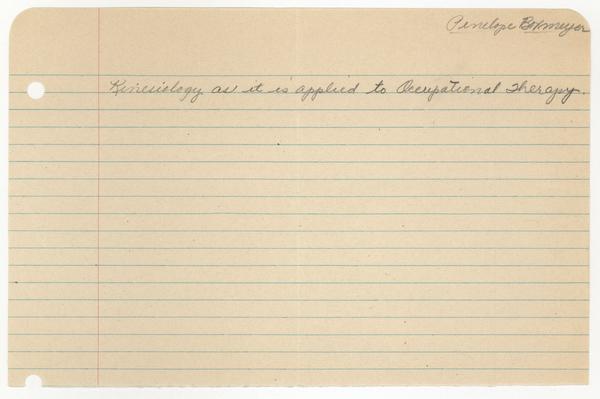 Penelope Boxmeyer
Kinesiology as it is applied to Occupational Therapy.